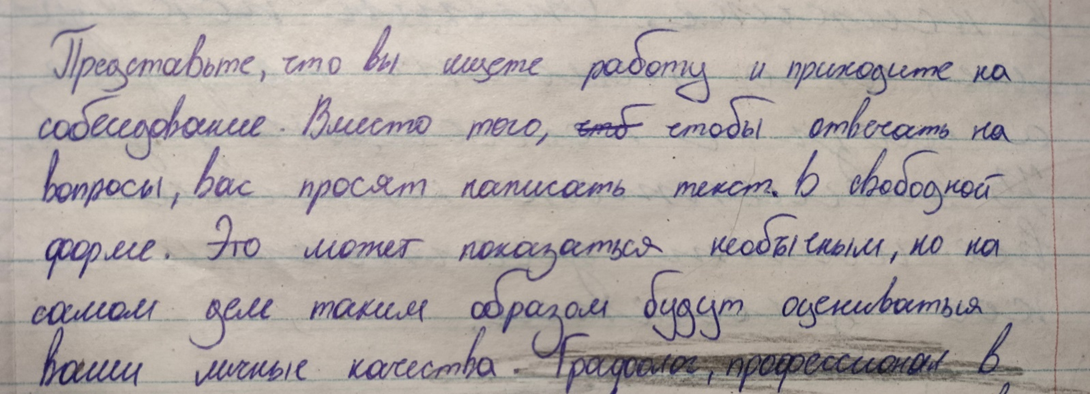 Представьте, что вы ищете работу и приходите на
собеседование. Вместо того, чтб чтобы отвечать на
вопросы, вас просят написать текст. в свободной
форме. Это может показаться необычным, но на
самом деле таким образом будут оцениваться
ваши личные качества. Графолог, профессионал в